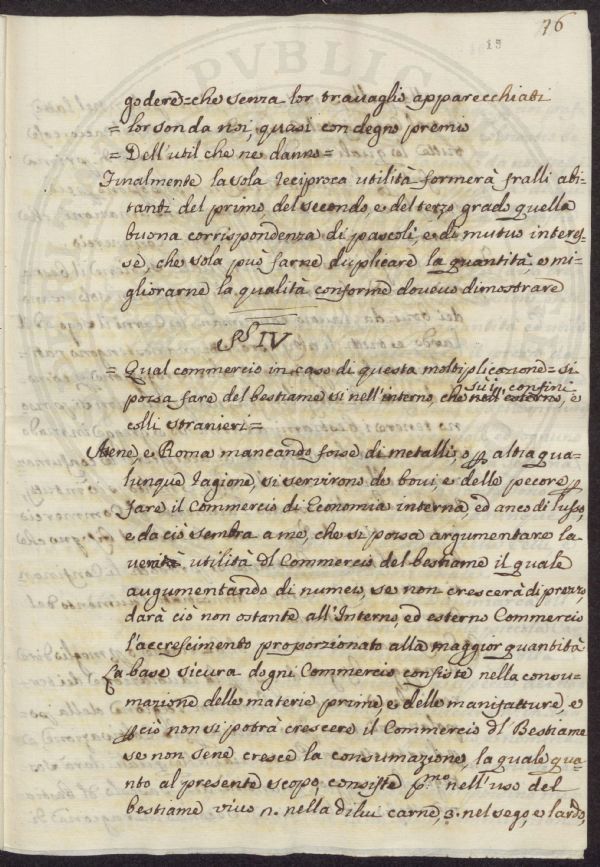 76
13
godere=che senza lor travaglio apparecchiati
= lor son da noi, quasi con degno premio
= Dell'util che ne danno=
Finalmente la sola reciproca utilità formerà fralli abi-
tanti del primo, del secondo, e del terzo grado quella
buona corrispondenza di pascoli, e di mutuo interes-
se, che sola può farne duplicare la quantità, e mi-
gliorarne la qualità conforme dovevo dimostrare
§§ IV
= Qual commercio in caso di questa moltiplicazione=si
possa fare del bestiame si nell'interno, che nell'esterno, e
sui confini
colli stranieri=
Atene, e Roma mancando forse di metallis, o p altra qua-
lunque ragione, si servirono de bovi, e delle pecore p
fare il Commercio di Economia interna, ed anco di lusso,
e da ciò sembra a me, che si possa argumentare la
verità utilità dl Commercio del bestiame il quale
augumentando di numero, se non crescerà di prezzo
darà ciò non ostante all'Interno, ed esterno Commercio
l'accrescimento proporzionato alla maggior quantità
La base sicura dogni Commercio consiste nella consu-
mazione delle materie prime e delle manifatture, e
pciò non si potrà crescere il Commercio dl Bestiame
se non sene cresce la consumazione, la quale qua-
nto al presente scopo, consiste pmo nell'uso del
bestiame vivo 2. nella dilui carne, 3. nel sego, e lardo,